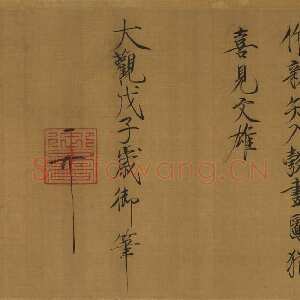 作新知入彀畫圖猶
喜見文雄
大觀戊子歲御筆